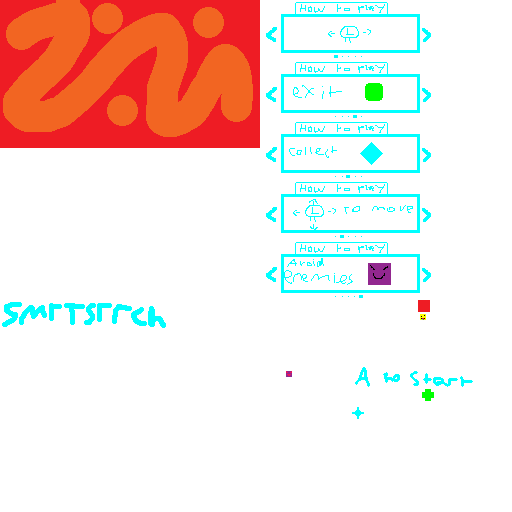 HOW to PlAY
< ←L→ >
HOW to PlAY
< exit >
HOW to PlAY
< collect >
HOW to PlAY
< ←L→ TO move >
HOW to PlAY
< Avoid
enemies >
A to start